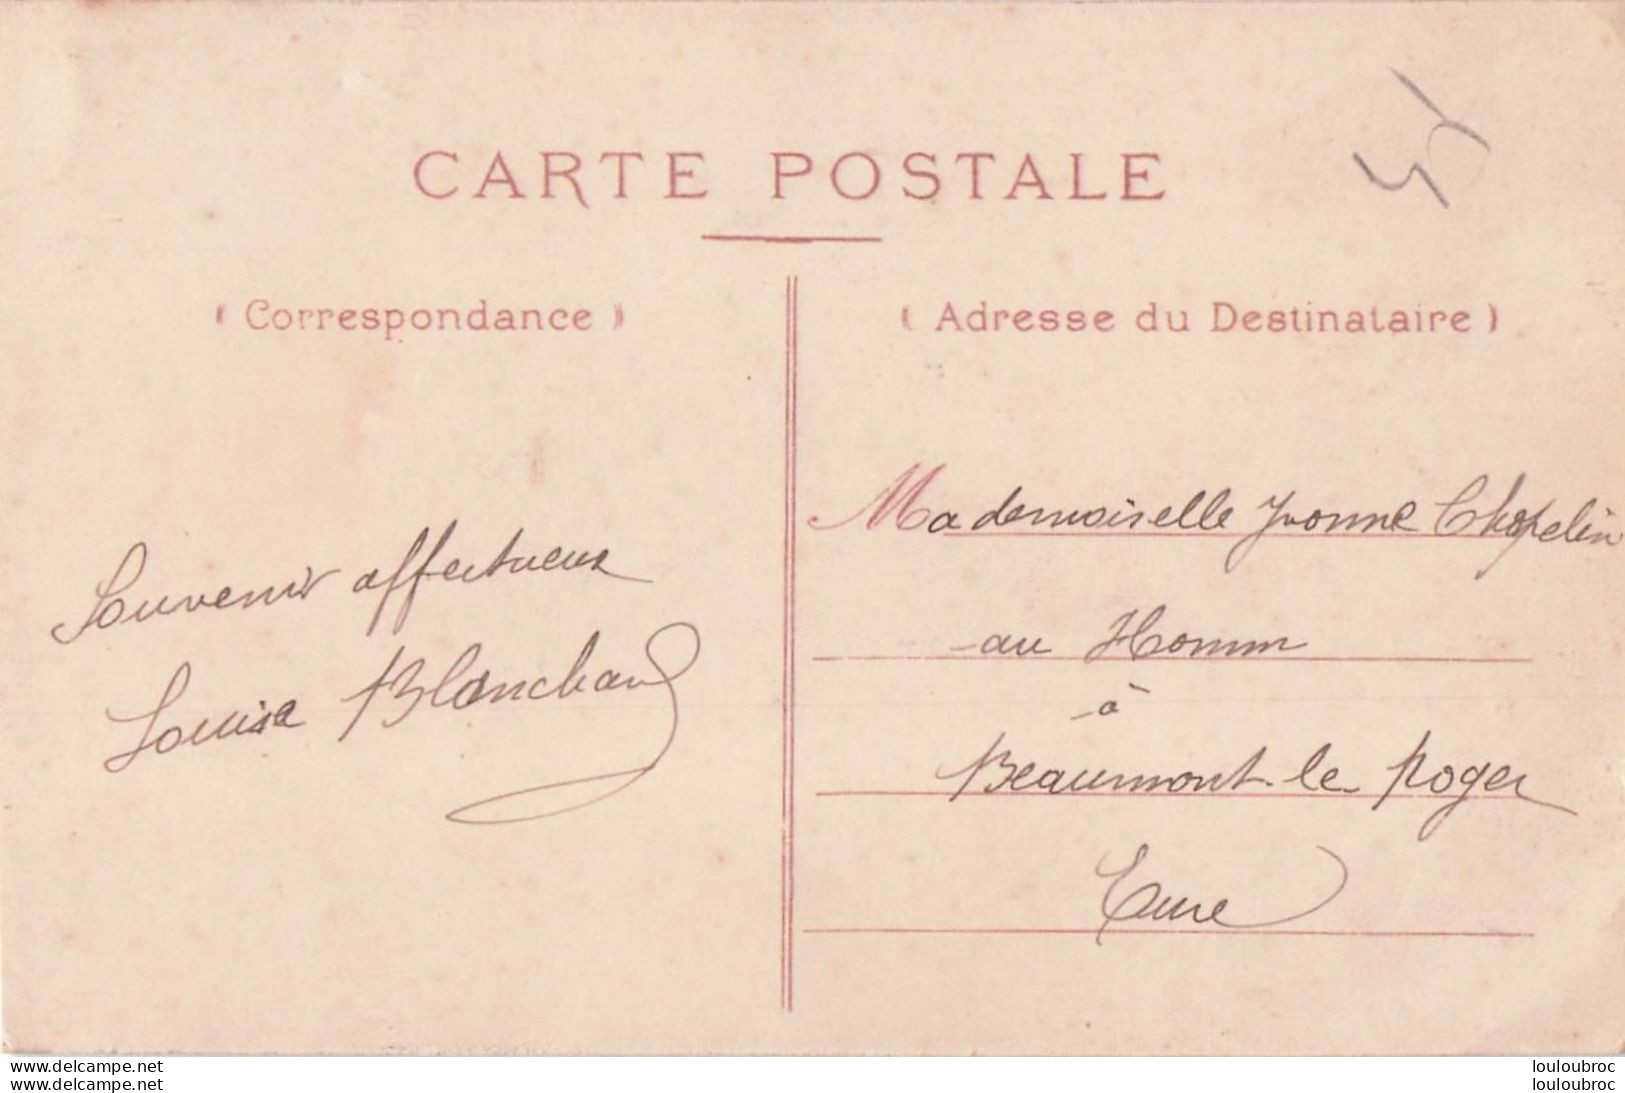 CARTE POSTALE
( Correspondance )
( Adresse du Destinataire )
Souvenir affectueux
Louisa Blanchard
Mademoiselle Yvonne Chapelin
au Homm
à
Beaumont-le-Roger
Eure
www.delcampe.net
www.delcampe.net
louloubroc
louloubroc